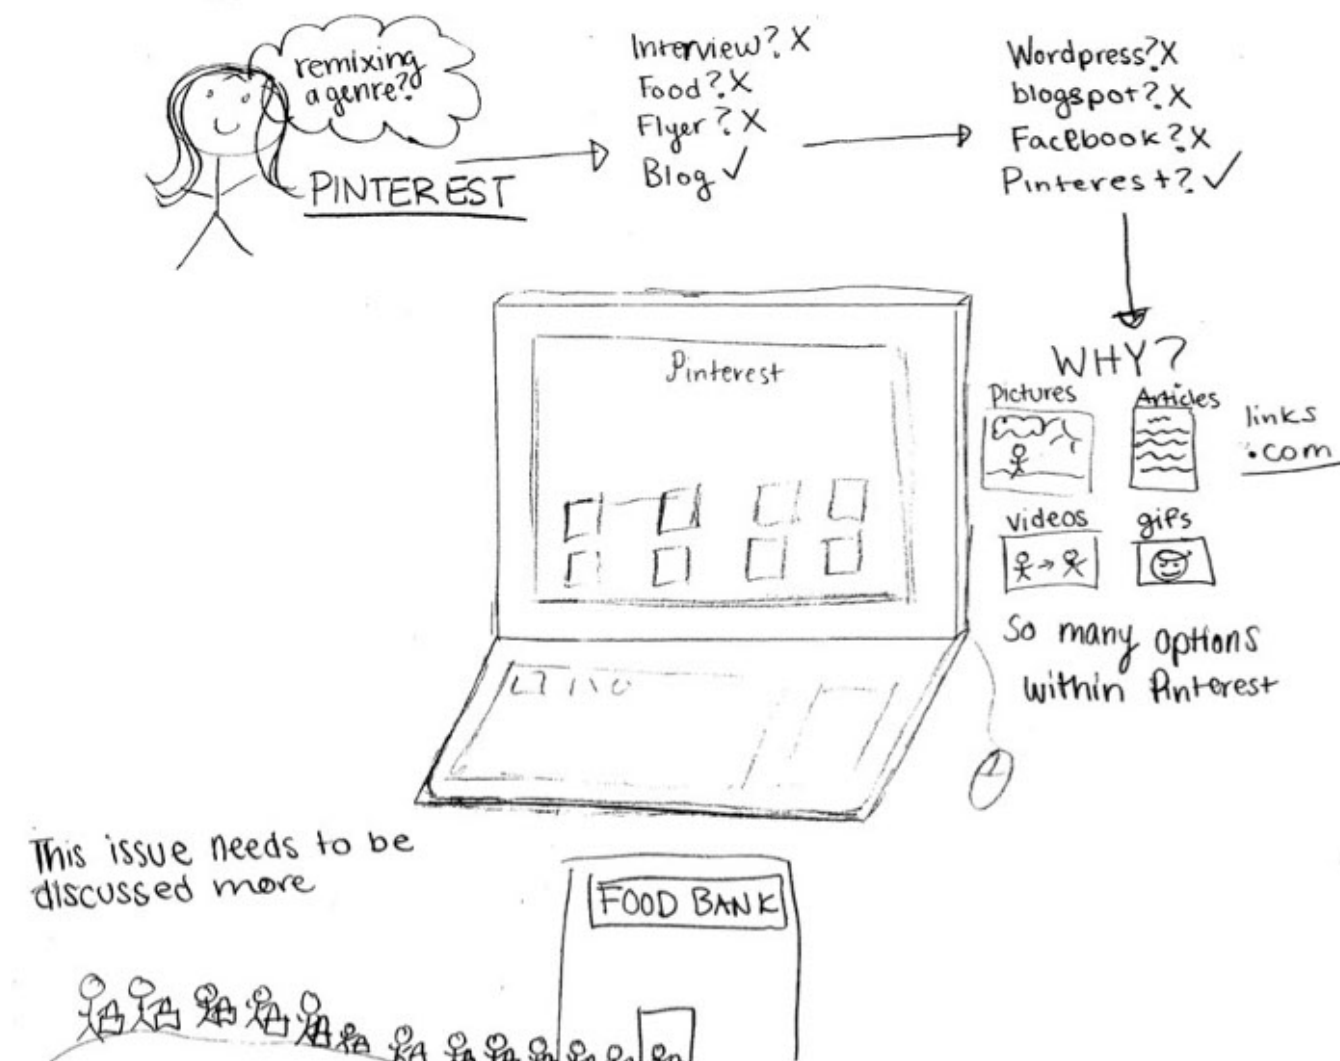 remixing
a genre?
PINTEREST
Interview? X
Food? X
Flyer? X
Blog ✓
Wordpress? X
blogspot? X
Facebook? X
Pinterest? ✓
WHY?
Pictures
Articles
links
.com
videos
gifs
So many options
within Pinterest
Pinterest
This issue needs to be
discussed more
FOOD BANK